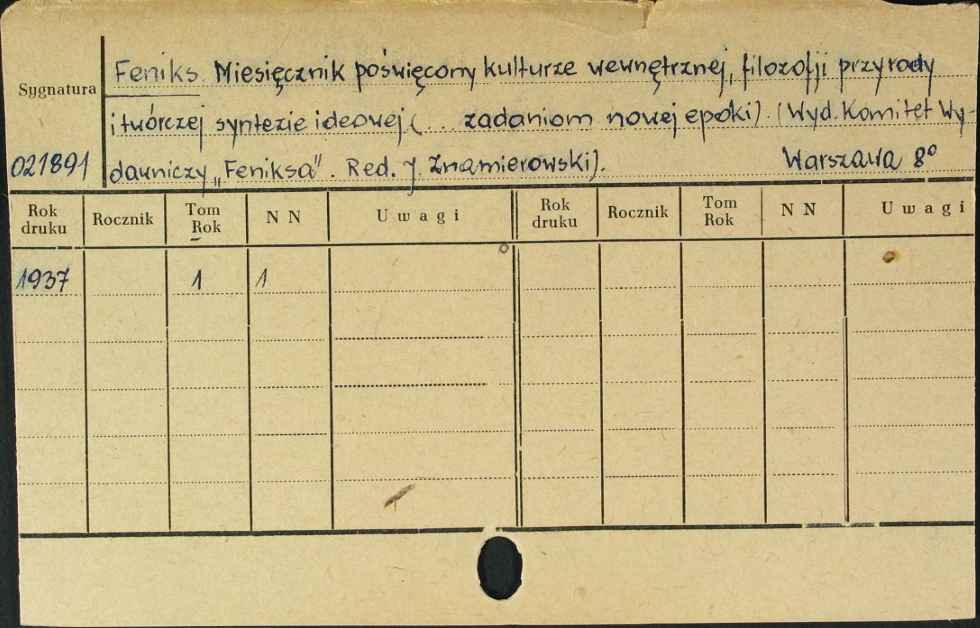 Sygnatura
Feniks. Miesięcznik poświęcony kulturze wewnętrznej, filozofji przyrody
i twórczej syntezie ideowej (... zadaniom nowej epoki). (Wyd. Komitet Wy-
021891 dawniczy „Feniksa". Red. J. Znamierowski). Warszawa 8°
Rok druku Rocznik Tom Rok N N Uwagi Rok druku Rocznik Tom Rok N N Uwagi
1937 1 1